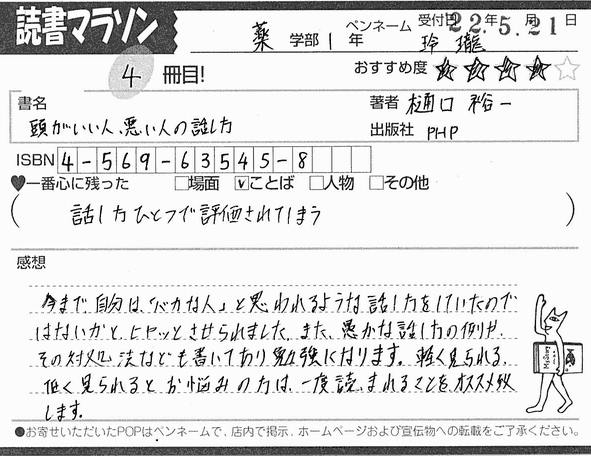 読書マラソン
薬 学部 1 年 ペンネーム 玲瓏 受付日 22年5月21日
4 冊目! おすすめ度 ★★★★☆
書名 頭がいい人、悪い人の話し方
著者 樋口裕一
出版社 PHP
ISBN 4-569-63545-8
♥一番心に残った □場面 ☑ことば □人物 □その他
( 話し方ひとつで評価されてしまう )
感想
今まで、自分は、「バカな人」と思われるような話し方をしていたので
はないかと、ヒヤッとさせられました。また、愚かな話し方の例や、
その対処法なども書いてあり勉強になります。軽く見られる、
低く見られるとお悩みの方は、一度読まれることをオススメ致
します。
●お寄せいただいたPOPはペンネームで、店内で掲示、ホームページおよび宣伝物への転載をご了承ください。